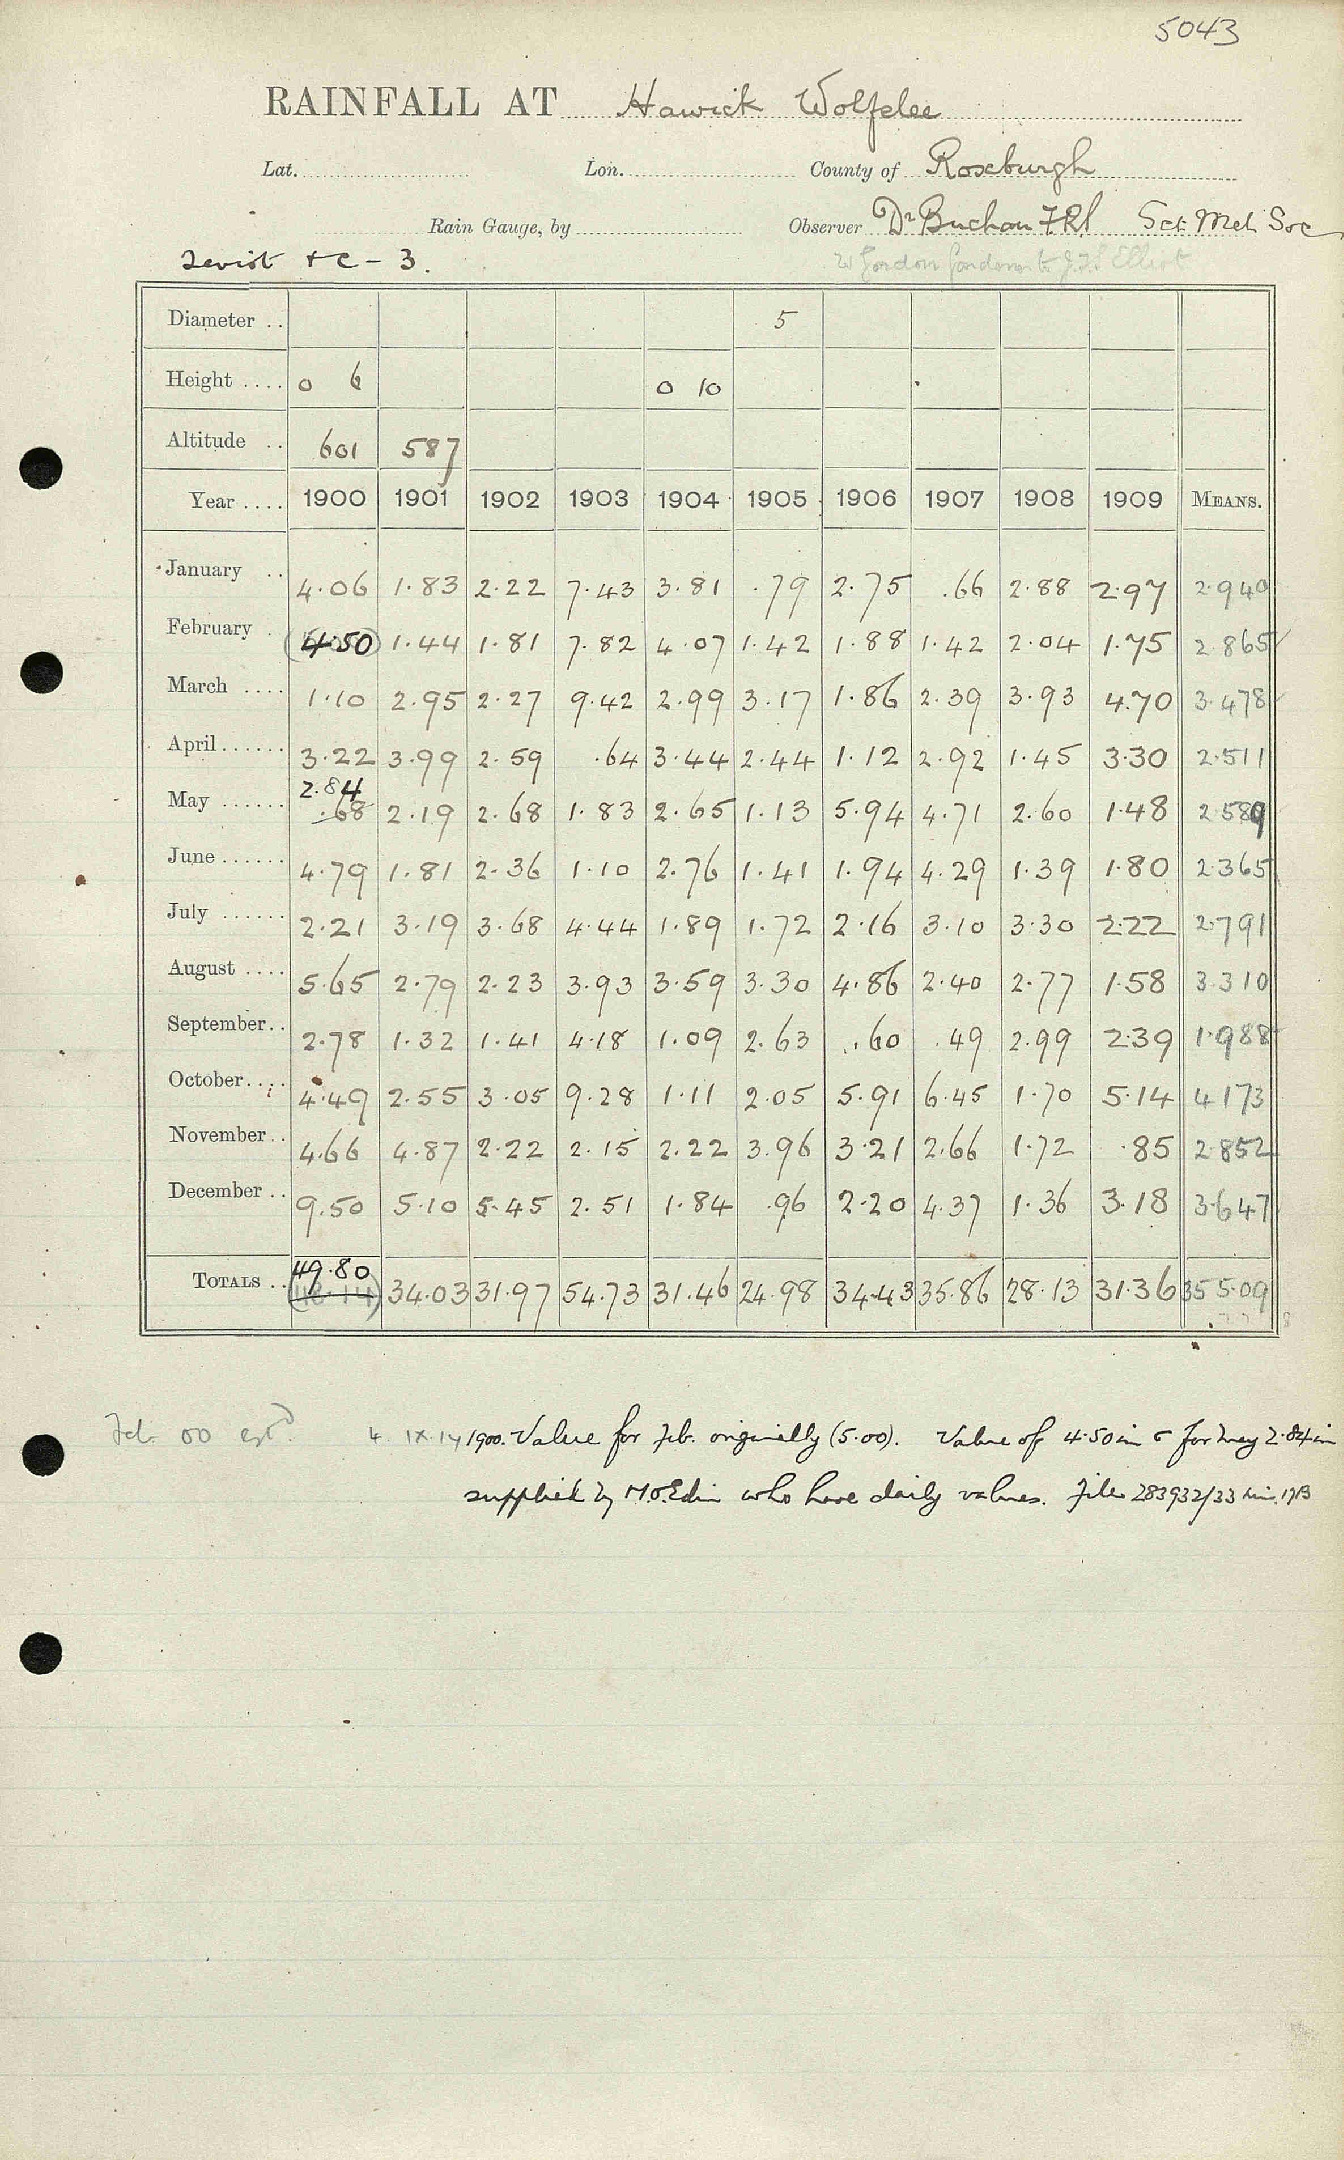 5043
RAINFALL AT Hawick Wolfelee
Lat. Lon. County of Roxburgh
Rain Gauge, by Observer Dr Buchan FRS Sct. Met. Soc
Teviot &c - 3.
W Gordon Gardener to J.T.S Elliot
Diameter .. 5
Height .... 0 6 0 10
Altitude .. 601 587
Year .... 1900 1901 1902 1903 1904 1905 1906 1907 1908 1909 MEANS.
January .. 4.06 1.83 2.22 7.43 3.81 .79 2.75 .66 2.88 2.97 2.940
February . (4.50) 1.44 1.81 7.82 4.07 1.42 1.88 1.42 2.04 1.75 2.865
March .... 1.10 2.95 2.27 9.42 2.99 3.17 1.86 2.39 3.93 4.70 3.478
April ...... 3.22 3.99 2.59 .64 3.44 2.44 1.12 2.92 1.45 3.30 2.511
2.84
May ...... .68 2.19 2.68 1.83 2.65 1.13 5.94 4.71 2.60 1.48 2.589
June ...... 4.79 1.81 2.36 1.10 2.76 1.41 1.94 4.29 1.39 1.80 2.365
July ...... 2.21 3.19 3.68 4.44 1.89 1.72 2.16 3.10 3.30 2.22 2.791
August .... 5.65 2.79 2.23 3.93 3.59 3.30 4.86 2.40 2.77 1.58 3.310
September.. 2.78 1.32 1.41 4.18 1.09 2.63 .60 .49 2.99 2.39 1.988
October.... 4.49 2.55 3.05 9.28 1.11 2.05 5.91 6.45 1.70 5.14 4.173
November.. 4.66 4.87 2.22 2.15 2.22 3.96 3.21 2.66 1.72 .85 2.852
December .. 9.50 5.10 5.45 2.51 1.84 .96 2.20 4.37 1.36 3.18 3.647
49.80
TOTALS .. (48.14) 34.03 31.97 54.73 31.46 24.98 34.43 35.86 28.13 31.36 35 5.09
Feb. 00 estd 4. IX. 14 1900. Value for Feb. originally (5.00). Value of 4.50in & for May 2.84in
supplied by M.O. Edin who have daily values. File 283932/33 Min.